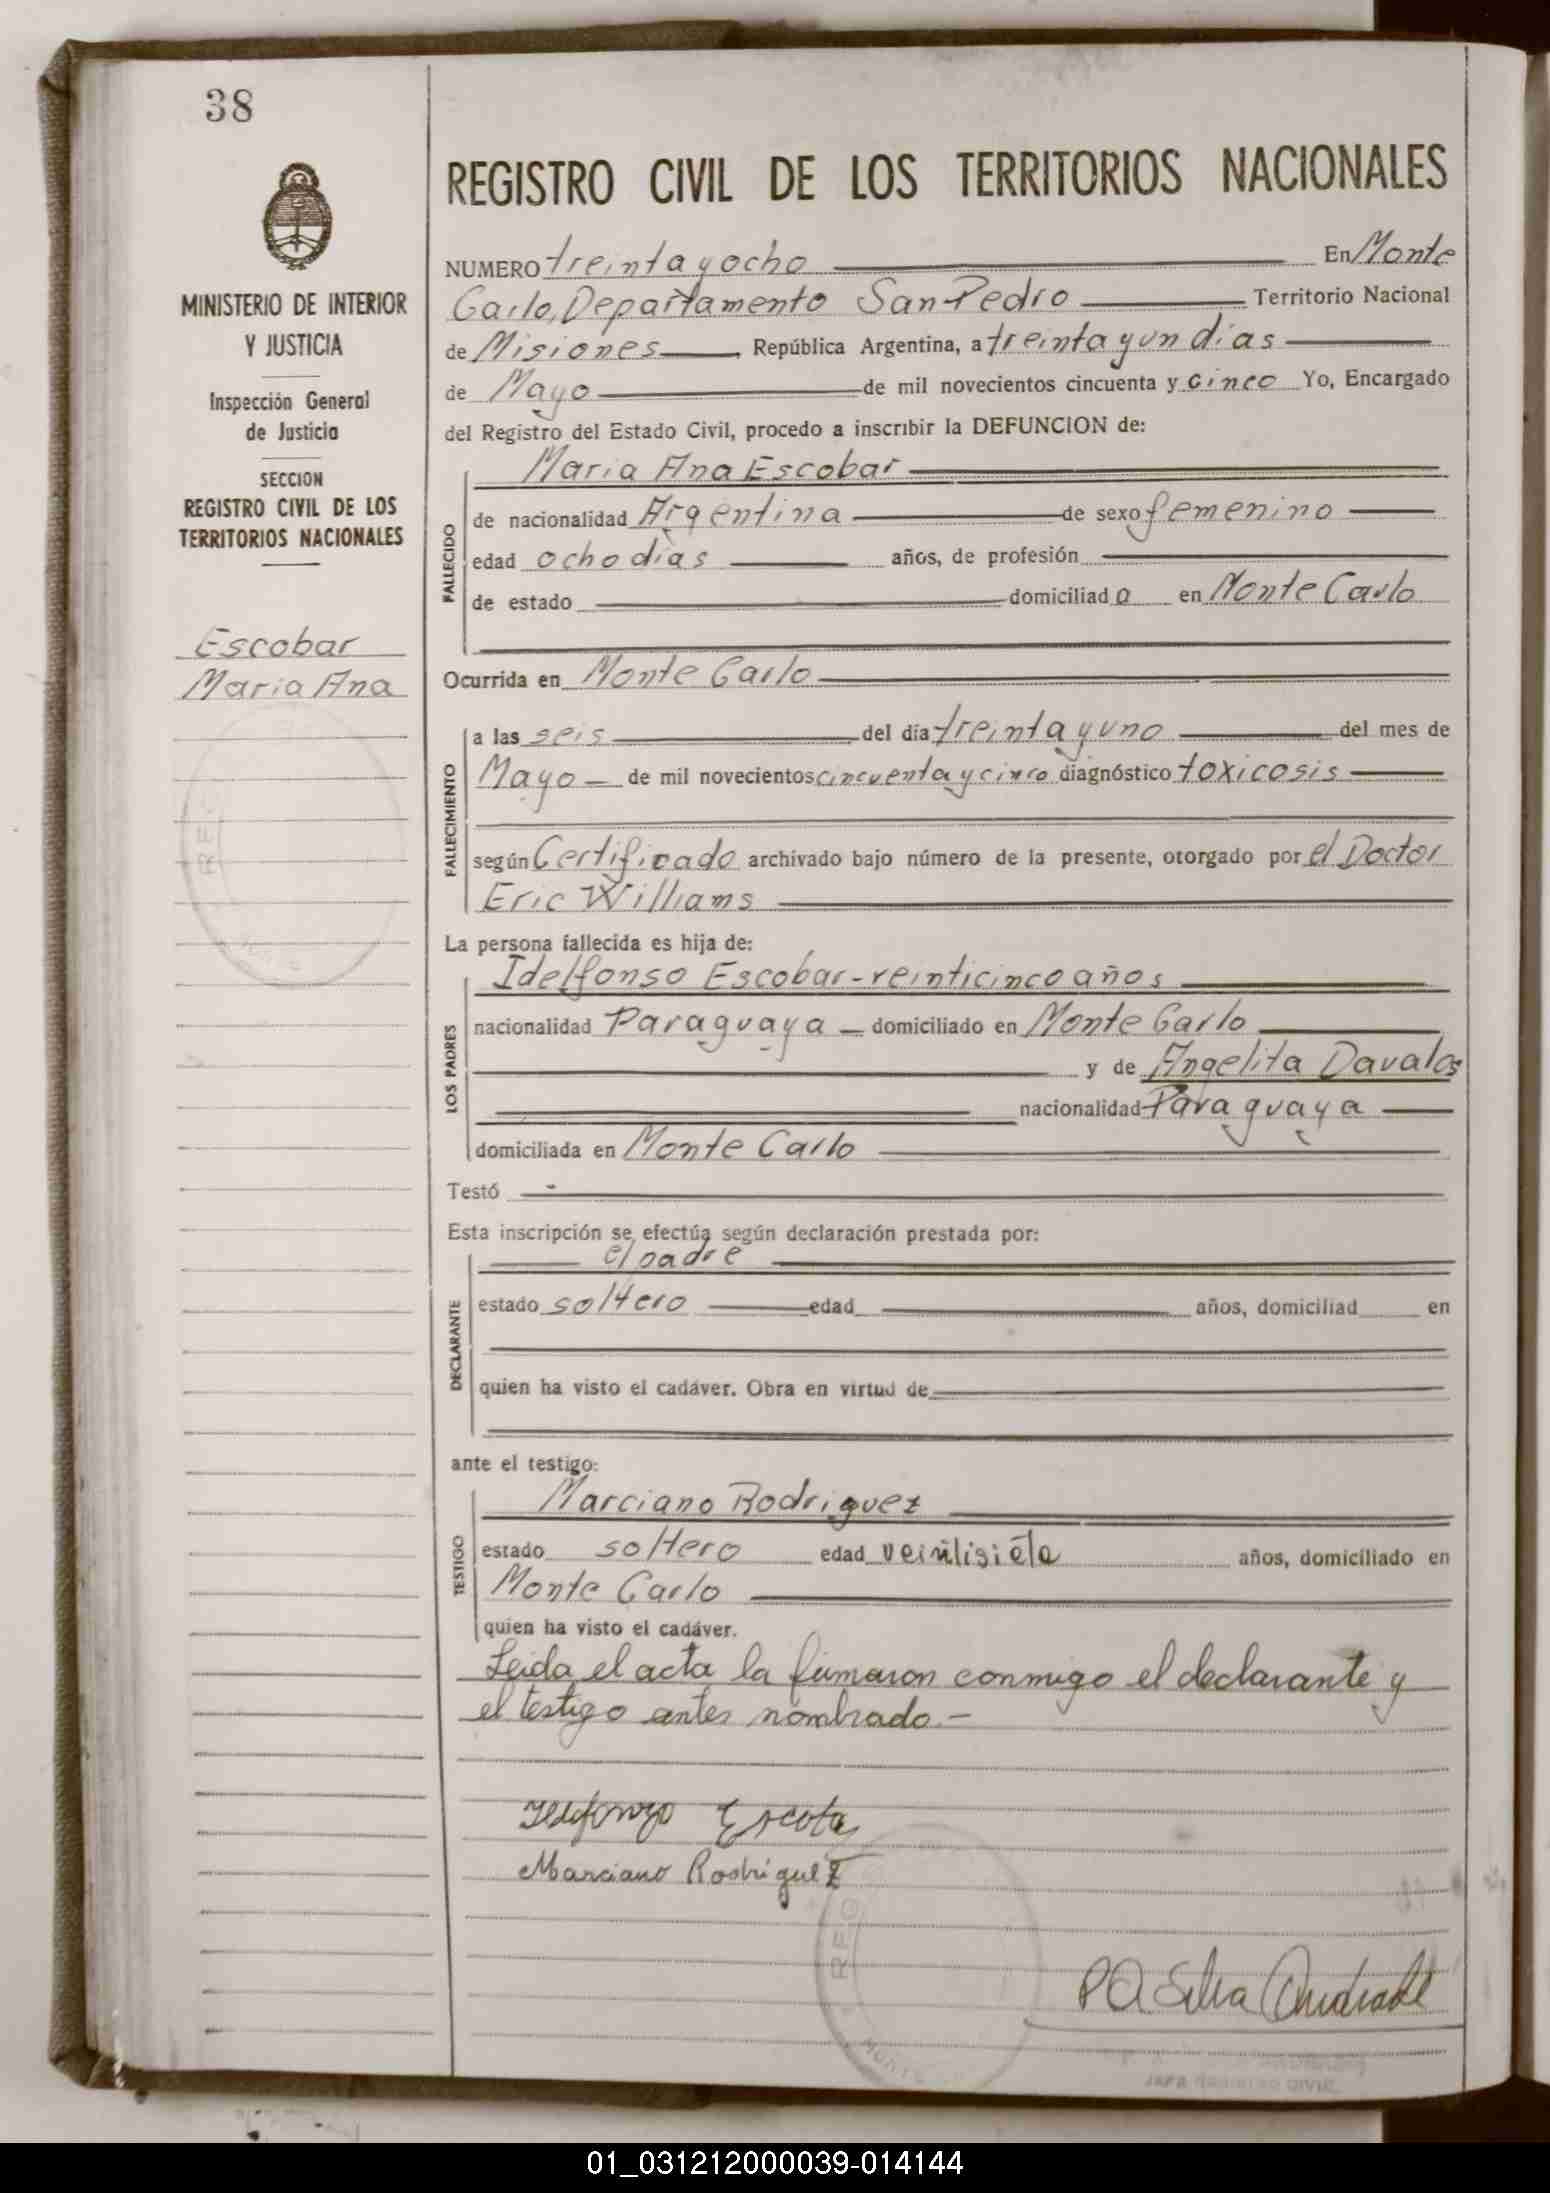 38
REGISTRO CIVIL DE LOS TERRITORIOS NACIONALES
MINISTERIO DE INTERIOR
Y JUSTICIA
Inspección General
de Justicia
SECCION
REGISTRO CIVIL DE LOS
TERRITORIOS NACIONALES
Escobar
Maria Ana
NUMERO treinta y ocho En Monte
Carlo, Departamento San Pedro Territorio Nacional
de Misiones, República Argentina, a treinta y un días
de Mayo de mil novecientos cincuenta y cinco Yo, Encargado
del Registro del Estado Civil, procedo a inscribir la DEFUNCION de:
FALLECIDO
Maria Ana Escobar
de nacionalidad Argentina de sexo femenino
edad ocho días años, de profesión
de estado domiciliad a en Monte Carlo
Ocurrida en Monte Carlo
FALLECIMIENTO
a las seis del día treinta y uno del mes de
Mayo de mil novecientos cincuenta y cinco diagnóstico toxicosis
según Certificado archivado bajo número de la presente, otorgado por el Doctor
Eric Williams
La persona fallecida es hija de:
LOS PADRES
Idelfonso Escobar - veinticinco años
nacionalidad Paraguaya domiciliado en Monte Carlo
y de Angelita Davalos
nacionalidad Paraguaya
domiciliada en Monte Carlo
Testó
Esta inscripción se efectúa según declaración prestada por:
DECLARANTE
el padre
estado soltero edad años, domiciliad en
quien ha visto el cadáver. Obra en virtud de
ante el testigo:
TESTIGO
Marciano Rodriguez
estado soltero edad veintisiete años, domiciliado en
Monte Carlo
quien ha visto el cadáver.
Leida el acta la firmaron conmigo el declarante y
el testigo antes nombrado.-
Ildefonzo Escobar
Marciano Rodriguez
REG
MONTE
P A Silva Andrade
JEFE REGISTRO CIVIL
01_031212000039-014144